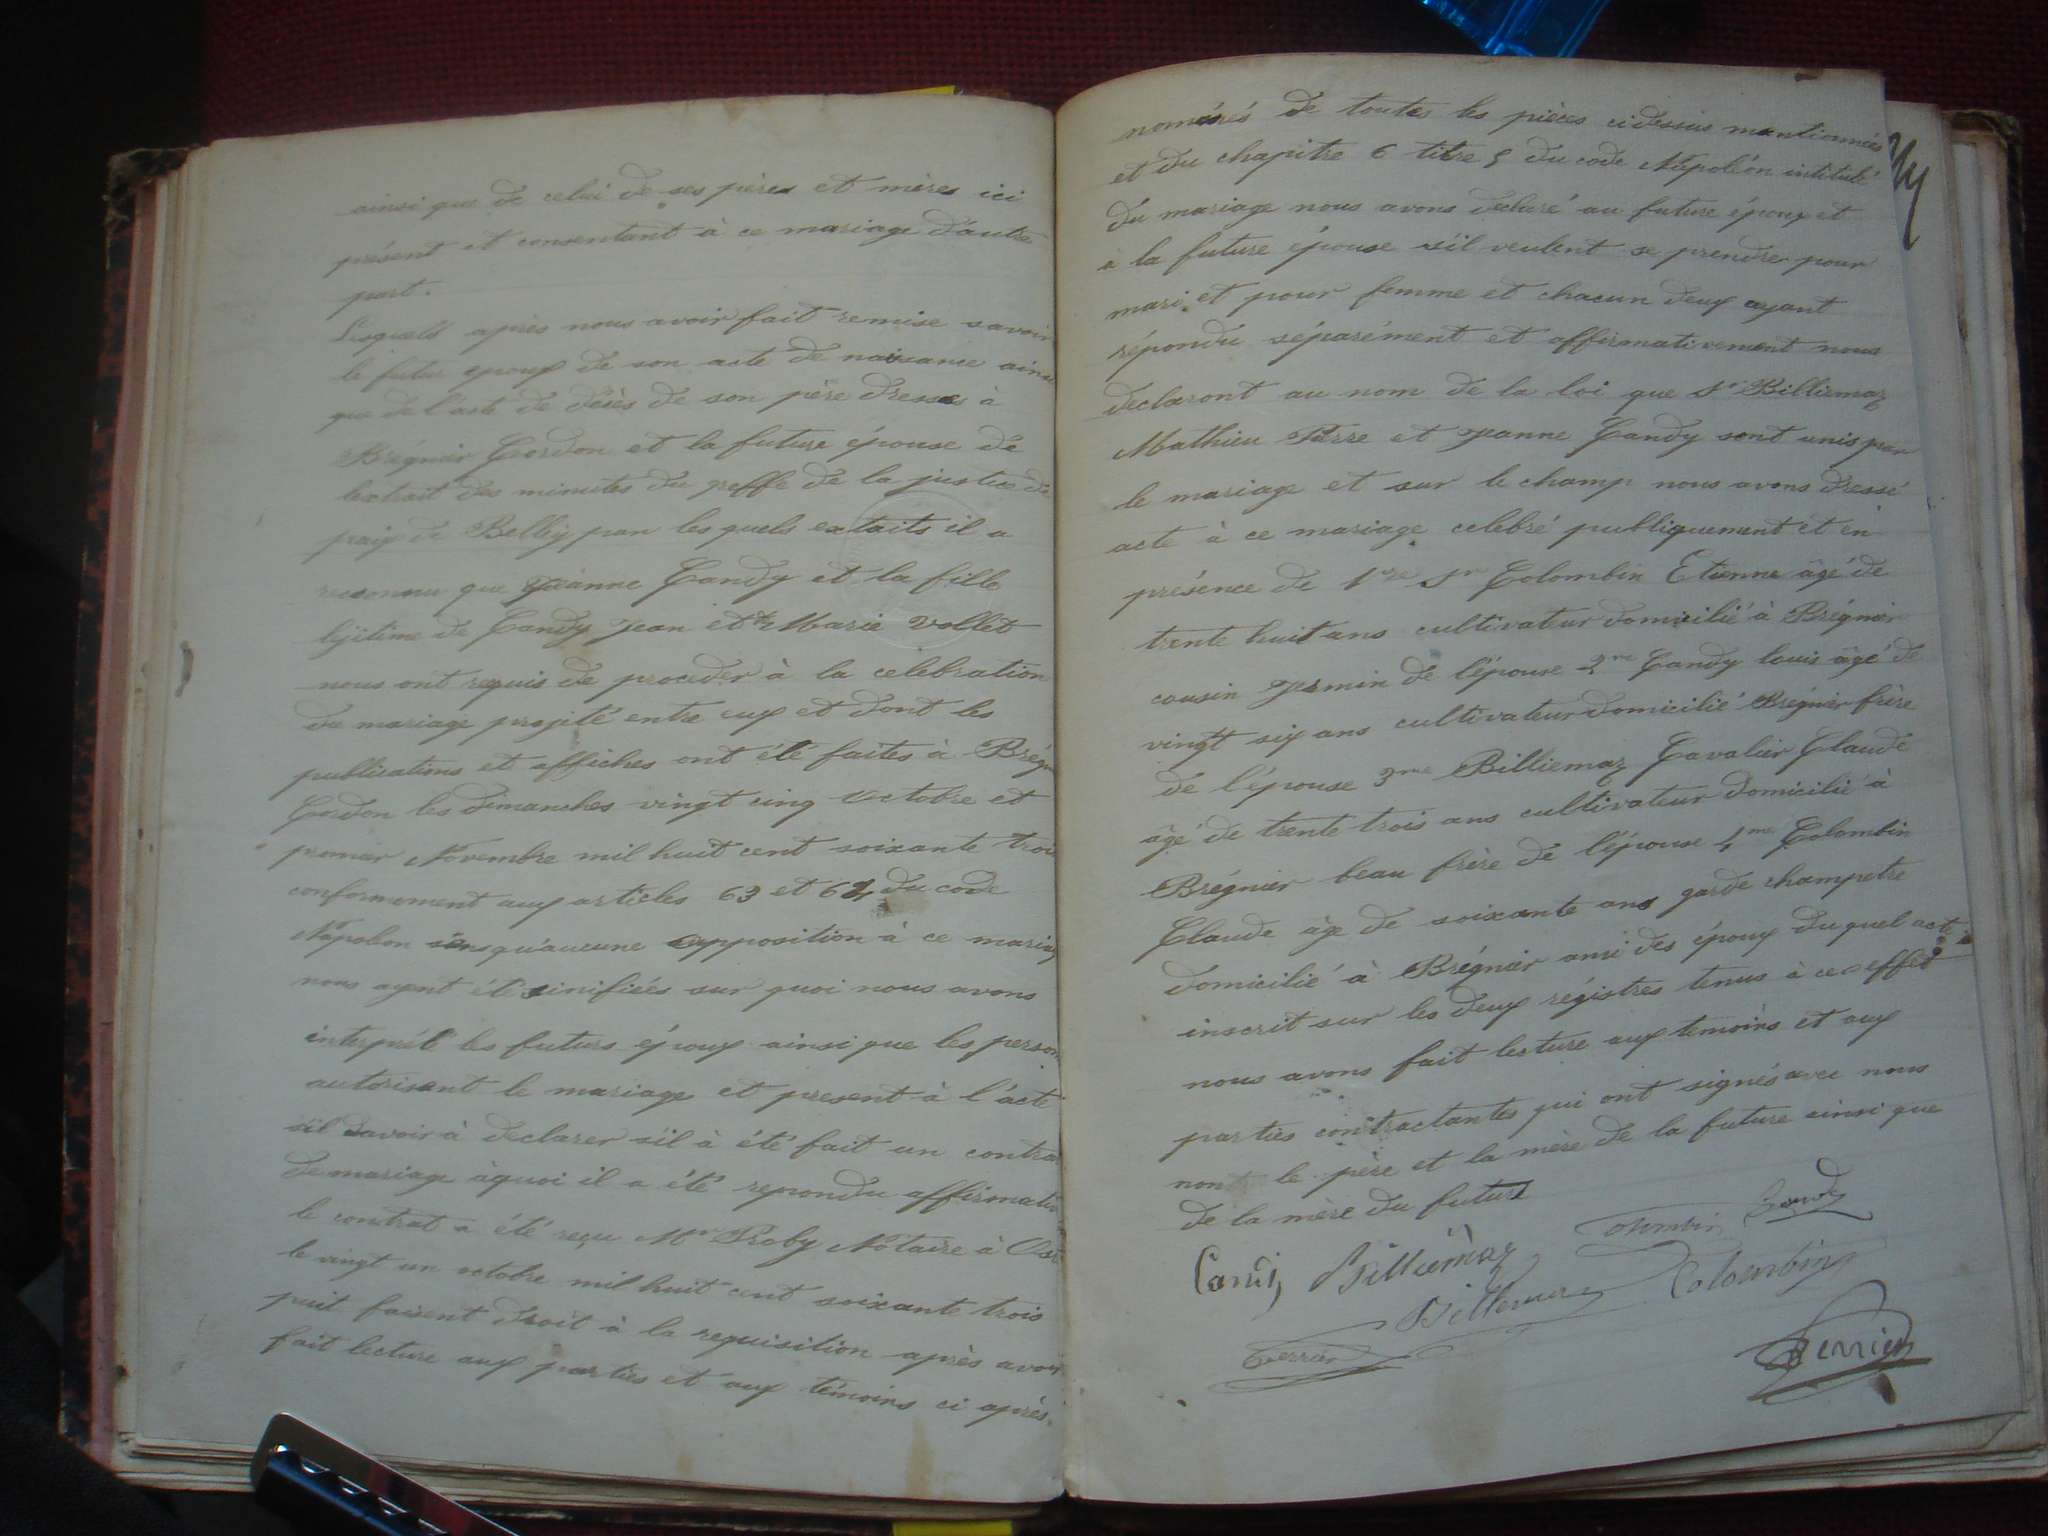 ainsi que de celui de ses pères et mères ici
présent et consentant à ce mariage d'autre
part.
Lesquels après nous avoir fait remise savoir
le futur epoux de son acte de naissance ainsi
que de l'acte de décès de son père dressés à
Brégnier Cordon et la future épouse de
lextrait des minutes du greffe de la justice de
paix de Belley par les quels extaits il a
reconnu que Jeanne Candy et la fille
lejitime de Candy Jean et Marie Vollet
nous ont requis de proceder à la celebration
du mariage projité entre eux et dont les
publications et affiches ont été faites à Brégn
Cordon les dimanches vingt cinq octobre et
premier Novembre mil huit cent soixante trois
conformement aux articles 63 et 64 du code
Napoleon sans qu'aucune opposition à ce mariag
nous ayent été sinifiées sur quoi nous avons
interpellé les futurs époux ainsi que les person
autorisent le mariage et present à l'acte
s'il davoir à declarer s'il à été fait un contra
de mariage àquoi il a été repondu affirmativ
le contrat a été reçu Mr Proby Notaire à
le vingt un octobre mil huit cent soixante trois
puit faisent droit à la requisition après avoir
fait lecture aux parties et aux témoins ci après
nommés de toutes les pièces ci dessus mentionnées
et du chapitre 6 titre 5 du code Napoléon intitulé
du mariage nous avons declaré au future époux et
à la future épouse s'il veulent se prendre pour
mari et pour femme et chacun deux ayant
répondu séparément et affirmativement nous
declaront au nom de la loi que Sr Billiemaz
Mathieu Pierre et Jeanne Candy sont unis par
le mariage et sur le champ nous avons dressé
acte à ce mariage celebré publiquement et en
présence de 1re Sr Colombin Etienne âgé de
trente huit ans cultivateur domicilié à Brégnier
cousin jermin de l'épouse 2me Candy louis âgé de
vingt six ans cultivateur domicilié Brégnier frère
de l'épouse 3me Billiemaz Cavalier Claude
âgé de trente trois ans cultivateur domicilié à
Brégnier beau frère de l'épouse 4me Colombin
Claude âge de soixante ans garde champetre
domicilié à Brégnier ami des époux du quel acte
inscrit sur les deux régistres tenus à ce effet
nous avons fait lecture aux temoins et aux
parties contractantes qui ont signés avec nous
non le père et la mère de la future ainsi que
de la mère du futur
Candy Billiemaz Colombin Candy
Billiemaz Colombin
Perrier Perrier